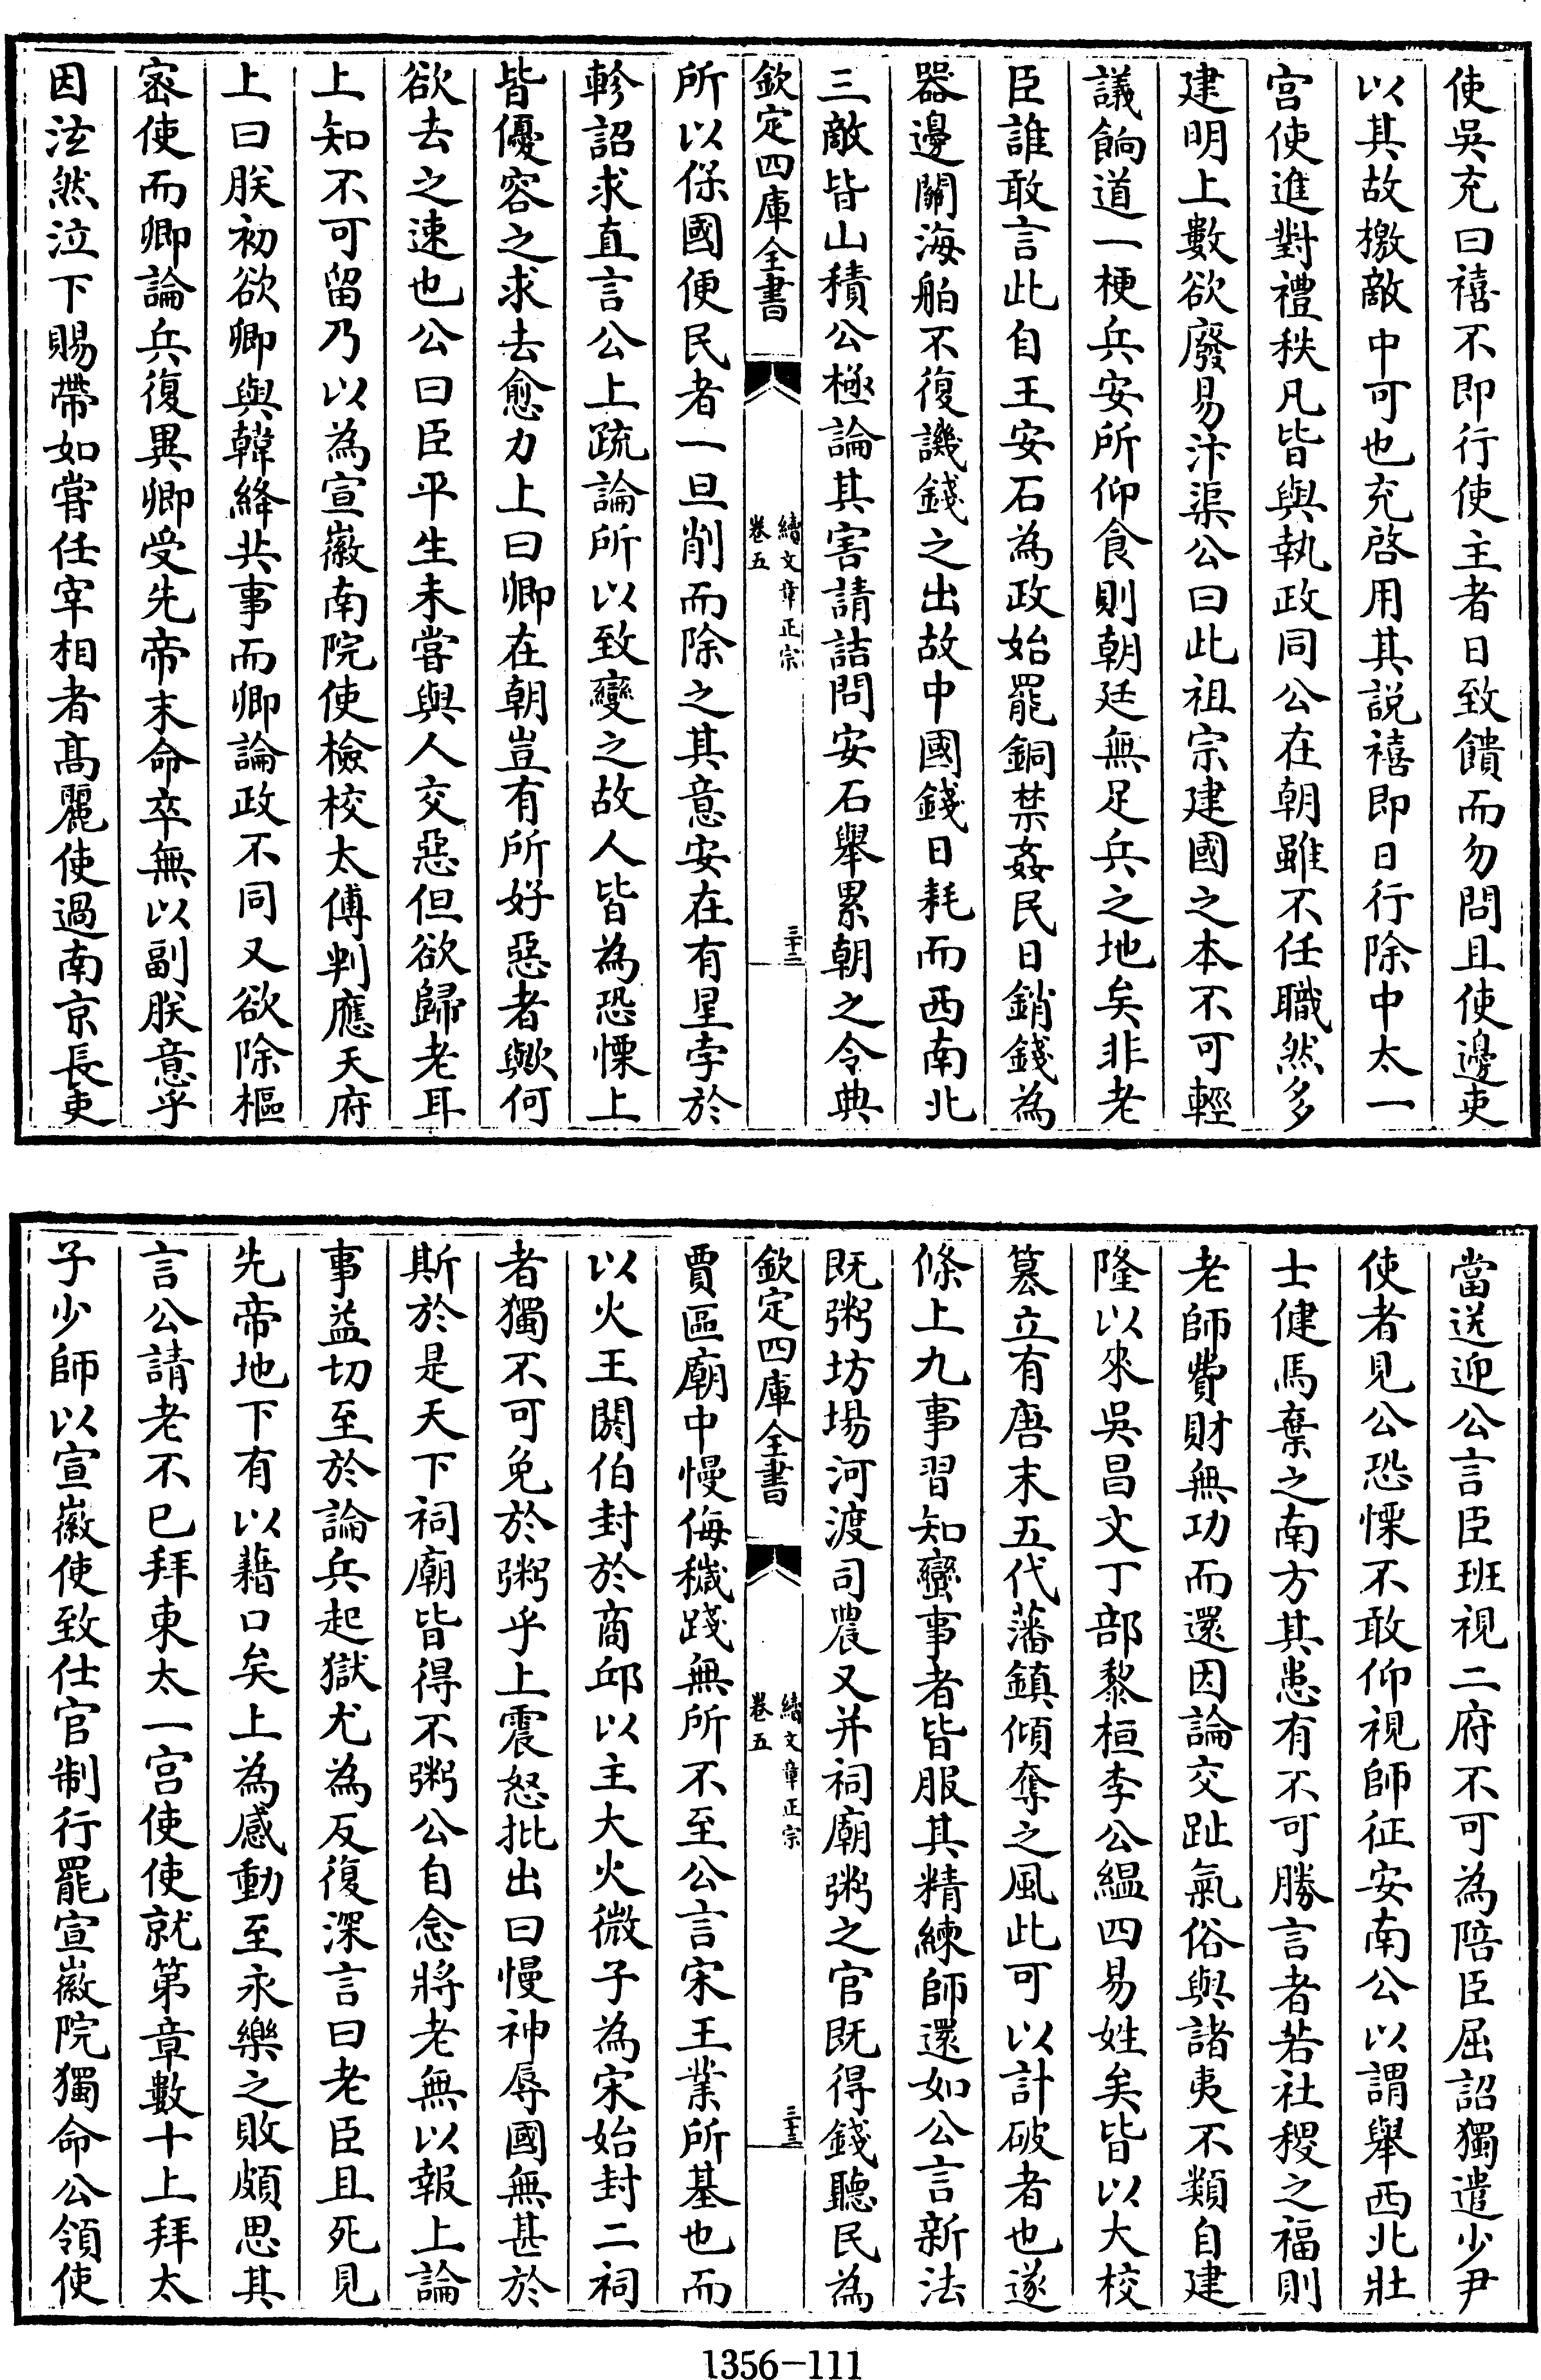 使吳充曰禧不即行使主者日致饋而勿問且使邊吏
以其故檄敵中可也充啓用其說禧即日行除中太一
宫使進對禮秩凡皆與執政同公在朝雖不任職然多
建明上數欲廢易汴渠公曰此祖宗建國之本不可輕
議餉道一梗兵安所仰食則朝廷無足兵之地矣非老
臣誰敢言此自王安石為政始罷銅禁姦民日銷錢為
器邊關海舶不復譏錢之出故中國錢日耗而西南北
三敵皆山積公極論其害請詰問安石舉累朝之令典
欽定四庫全書
續文章正宗
卷五
三十三
所以保國便民者一旦削而除之其意安在有星孛於
軫詔求直言公上疏論所以致變之故人皆為恐慄上
皆優容之求去愈力上曰卿在朝豈有所好惡者歟何
欲去之速也公曰臣平生未嘗與人交惡但欲歸老耳
上知不可留乃以為宣徽南院使檢校太傅判應天府
上曰朕初欲卿與韓絳共事而卿論政不同又欲除樞
宻使而卿論兵復異卿受先帝末命卒無以副朕意乎
因泫然泣下賜帶如嘗任宰相者髙麗使過南京長吏
當送迎公言臣班視二府不可為陪臣屈詔獨遣少尹
使者見公恐慄不敢仰視師征安南公以謂舉西北壯
士健馬棄之南方其患有不可勝言者若社稷之福則
老師費財無功而還因論交趾氣俗與諸夷不類自建
隆以來吳昌文丁部黎桓李公緼四易姓矣皆以大校
簒立有唐末五代藩鎮傾奪之風此可以計破者也遂
條上九事習知蠻事者皆服其精練師還如公言新法
既粥坊場河渡司農又并祠廟粥之官既得錢聽民為
欽定四庫全書
續文章正宗
卷五
三十三
賈區廟中慢侮穢踐無所不至公言宋王業所基也而
以火王閼伯封於商邱以主大火微子為宋始封二祠
者獨不可免於粥乎上震怒批出曰慢神辱國無甚於
斯於是天下祠廟皆得不粥公自念將老無以報上論
事益切至於論兵起獄尤為反復深言曰老臣且死見
先帝地下有以藉口矣上為感動至永樂之敗頗思其
言公請老不已拜東太一宫使使就第章數十上拜太
子少師以宣徽使致仕官制行罷宣徽院獨命公領使
1356-111